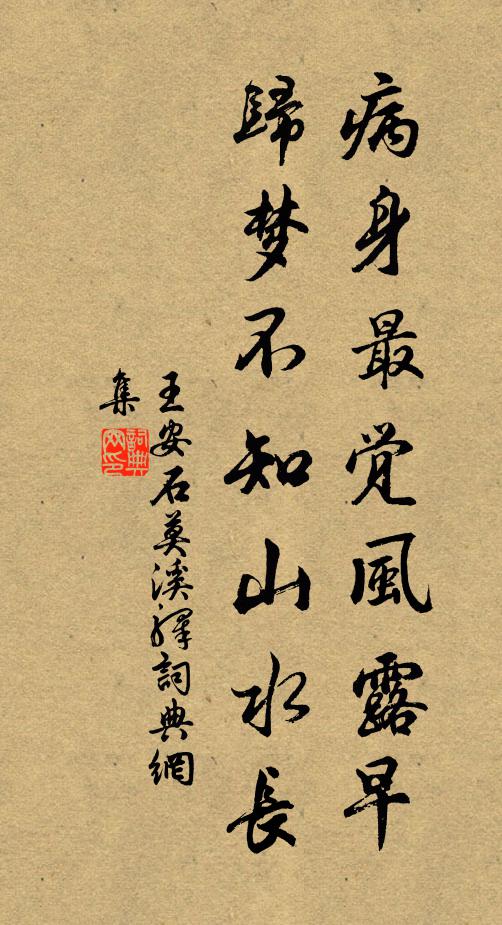 病身最觉風露早
歸梦不知山水長
王安石葛溪驛詞典網
集
詞典網印